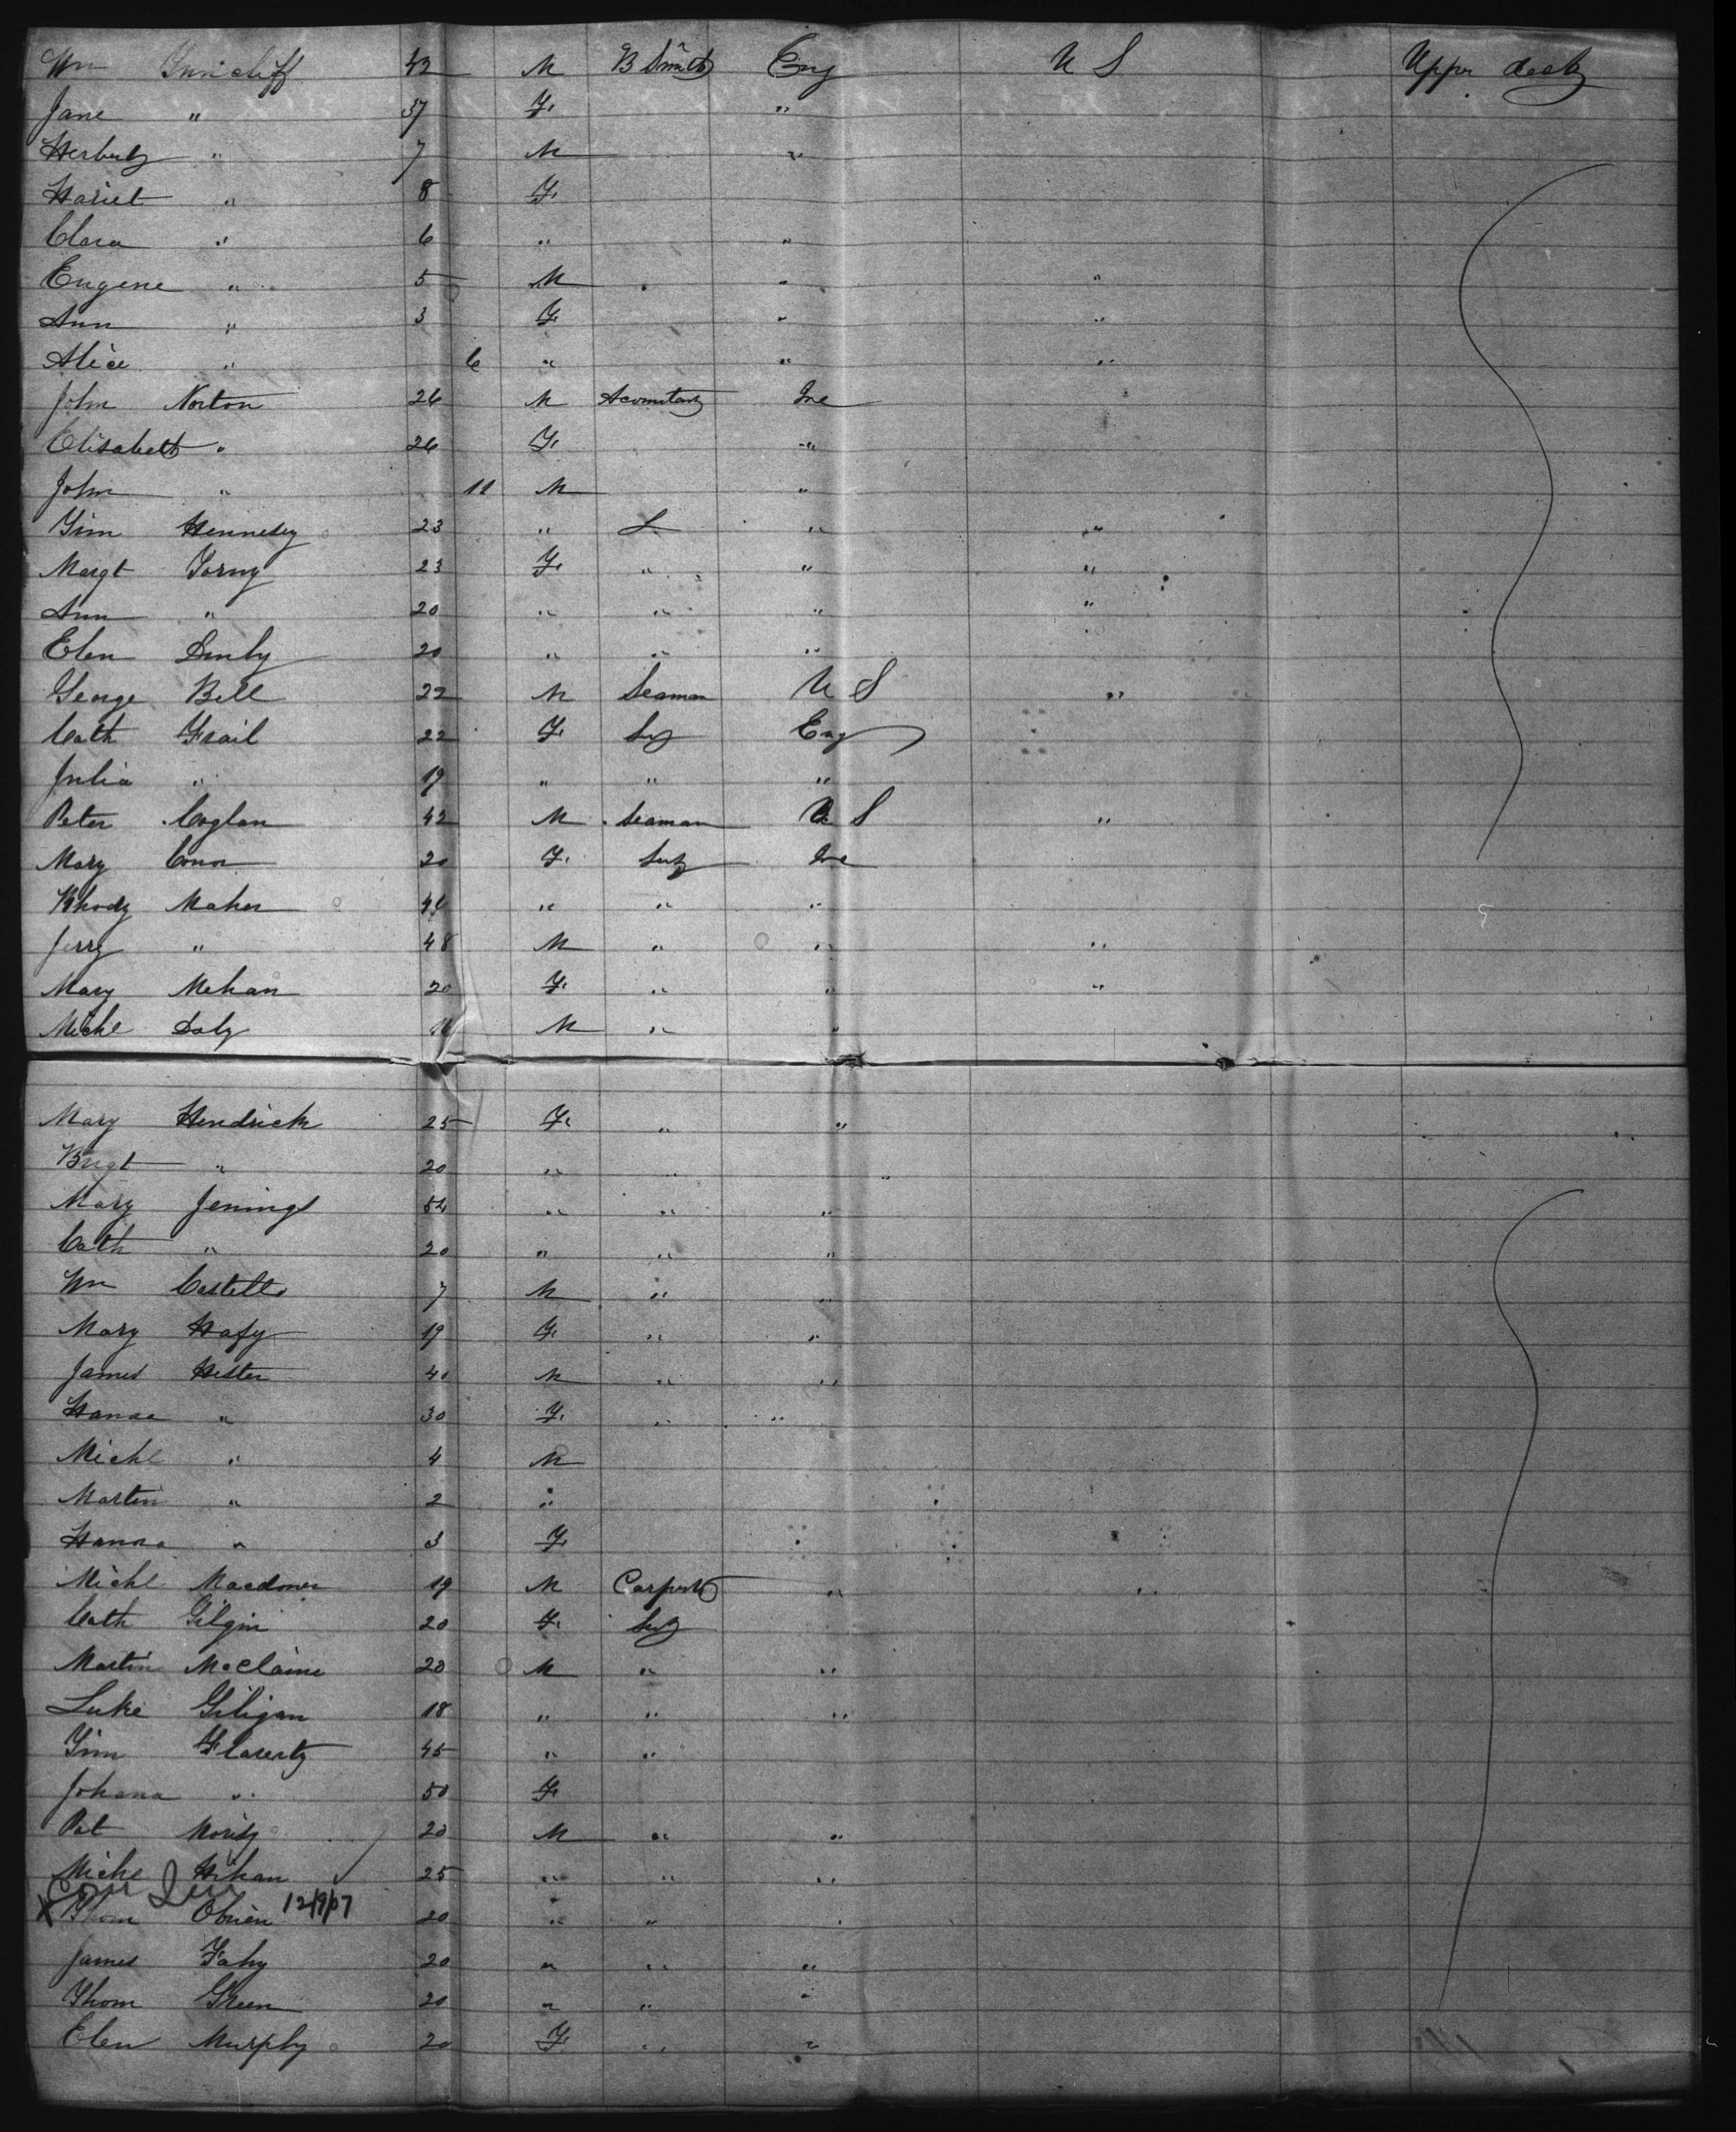 Wm Tunicliff 42 M B Smith Eng U S Upper deck
Jane " 37 F. "
Herbert " 7 M "
Hariet " 8 F.
Clara " 6 " "
Eugene " 5 M " " "
Ann " 3 F. " "
Alice " 6 " " "
John Norton 26 M Acountant Ire
Elisabeth " 26 F. "
John " 11 M "
Tim Hennesy 23 " L " "
Margt 23 F. " " "
Ann " 20 " " " "
Elen 20 " " "
George Bell 22 M Seaman U S "
Cath Frail 22 F. Svt Eng
Julia " 19 " " "
Peter Coglan 42 M Seaman U S "
Mary Conor 20 F. Svt Ire
Rhody Maher 46 " " "
Jerry " 48 M " " "
Mary Mehan 20 F. " " "
Michl Daly M " "
Mary Hendrick 25 F. " "
Brigt " 20 " " "
Mary Jennings 52 " " "
Cath " 20 " " "
Wm Costello 7 M " "
Mary Hafy 19 F. " "
James Hester 40 M " "
Hanna " 30 F. " "
Michl " 4 M
Martin " 2 "
Hanna " 3 F.
Michl 19 M Carpenter " "
Cath Gilgin 20 F. Svt
Martin McClaine 20 M " "
Luke Giligan 18 " " "
Tim Flaverty 45 " "
Johana " 50 F.
Pat 20 M " "
Michl Hihan 25 " " "
X 12/9/07
Thom Obrien 20 " "
James Fahy 20 " " "
Thom Green 20 " " "
Elen Murphy 20 F. " "